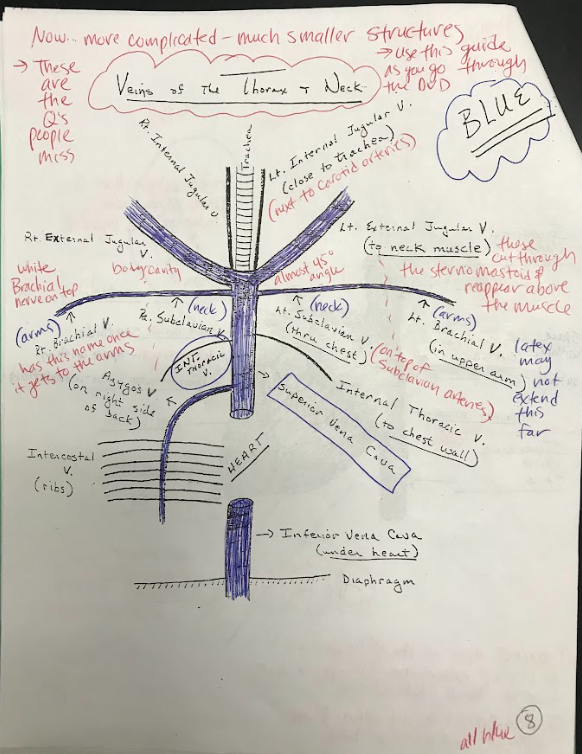 Now... more complicated - much smaller structures
→ These
are
the
Q's
people
miss
→ use this guide
as you go through
the DVD
Veins of The Thorax + Neck
BLUE
Rt. Internal Jugular V.
Trachea
Lt. Internal Jugular V.
(close to trachea)
(next to carotid arteries)
Rt. External Jugular
V.
Lt. External Jugular V.
(to neck muscle)
these
cut through
the sternomastoid &
reappear above
the muscle
white
Brachial
nerve on top
body cavity
almost 45°
angle
(arms)
(neck)
(neck)
(arms)
Rt. Brachial V.
has this name once
it gets to the arms
Rt. Subclavian V.
Lt. Subclavian V.
(thru chest)
(on top of
Subclavian arteries)
Lt. Brachial V.
(in upper arm)
latex
may
not
extend
this
far
INT.
THORACIC
V.
Azygos V
(on right side
of back)
Internal Thoracic V.
(to chest wall)
Superior Vena Cava
Intercostal
V.
(ribs)
HEART
→ Inferior Vena Cava
(under heart)
Diaphragm
all blue
8